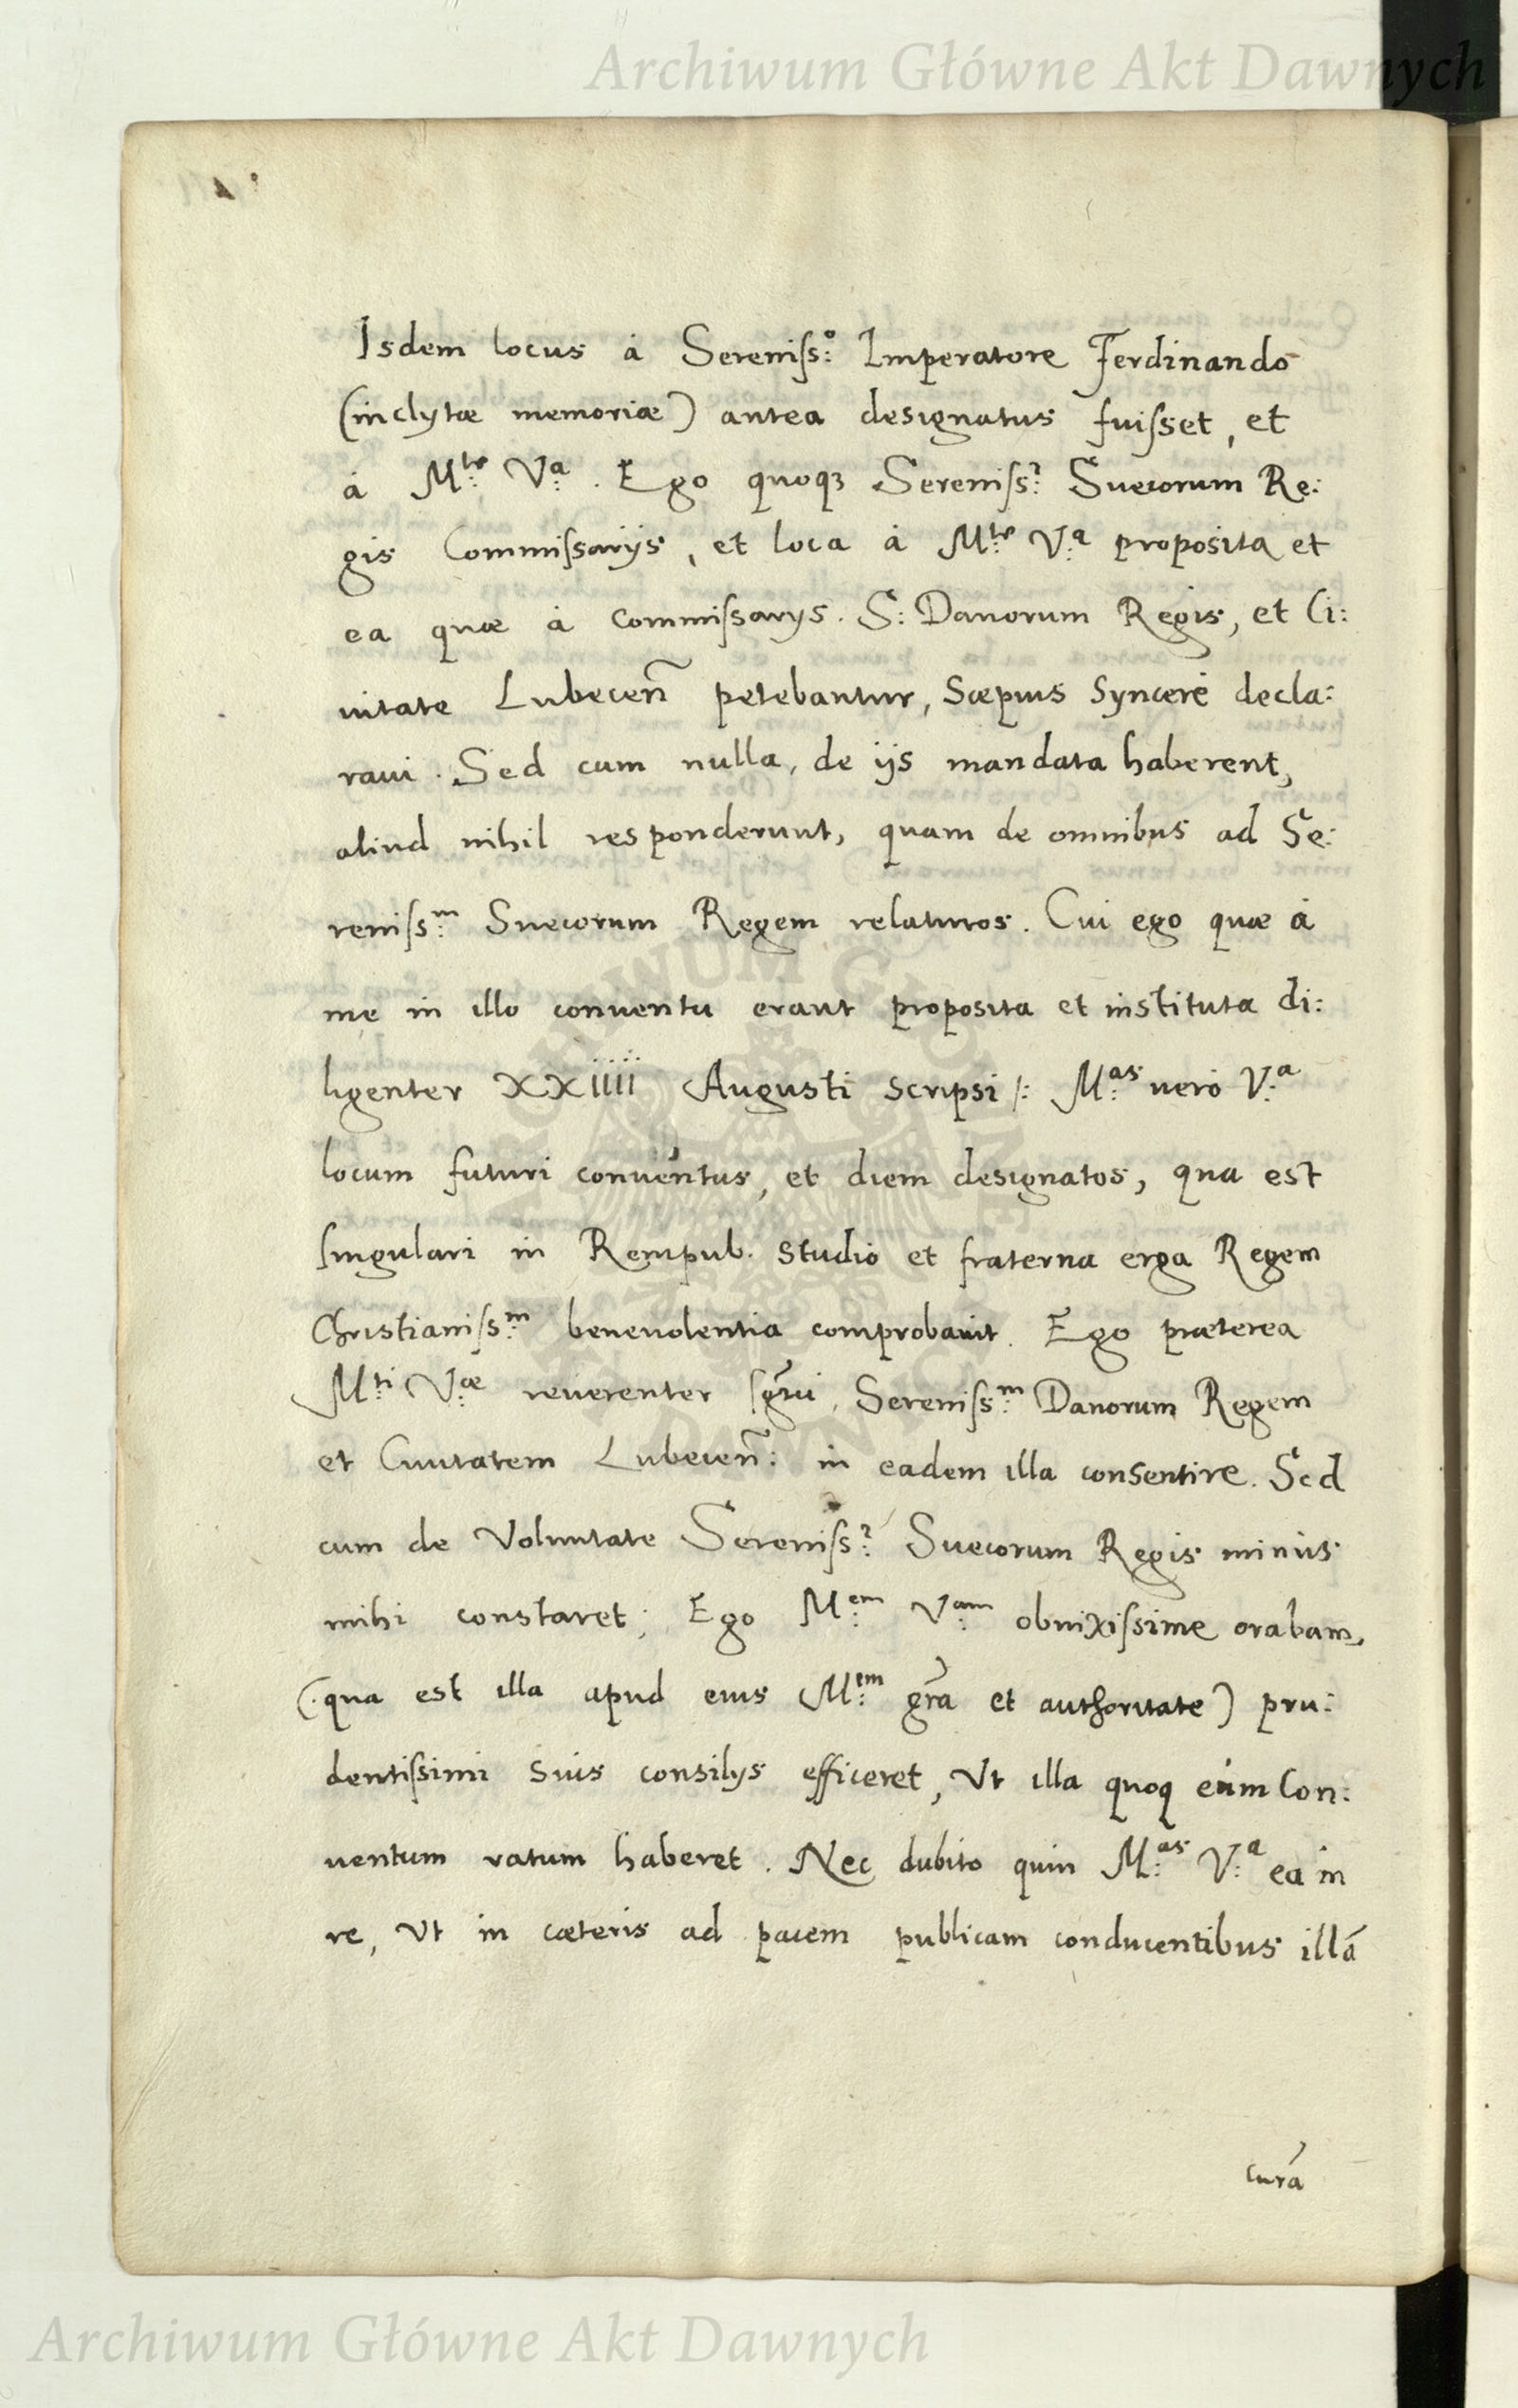 Archiwum Główne Akt Dawnych
Isdem locus à Sereniſs:º Imperatore Ferdinando
(inclytæ memoriæ) antea designatus fuiſset, et
à M:te V:a. Ego quoqꝫ Sereniſs:i Suecorum Re:
gis Commiſsarijs, et loca à M:te V:a proposita et
ea quæ à Commiſsarys. S: Danorum Regis, et Ci:
uitate Lubecen̄ petebantur, Sæpius Synceré decla:
raui. Sed cum nulla, de ijs mandata haberent,
aliud nihil responderunt, quam de omnibus ad Se:
reniſs:m Suecorum Regem relaturos. Cui ego quæ à
me in illo conuentu erant proposita et instituta di:
ligenter XXiiii Augusti scripsi /: M:as uero V:a
locum futuri conuentus, et diem designatos, qua est
ſingulari in Rempub. studio et fraterna erga Regem
Christianiſs:m beneuolentia comprobauit. Ego præterea
M:ti V:æ reuerenter ſgr̄ui, Sereniſs:m Danorum Regem
et Ciuitatem Lubecen̄: in eadem illa consentire. Sed
cum de Voluntate Sereniſs:i Suecorum Regis minus
mihi constaret; Ego M:em V:am obnixiſsime orabam,
(qua est illa apud eius M:em gr̄a et authoritate) pru:
dentiſsimi suis consilys efficeret, Vt illa quoq eum Con:
uentum ratum haberet. Nec dubito quin M:as V:a ea in
re, Vt in cæteris ad pacem publicam conducentibus illā
curā
Archiwum Główne Akt Dawnych